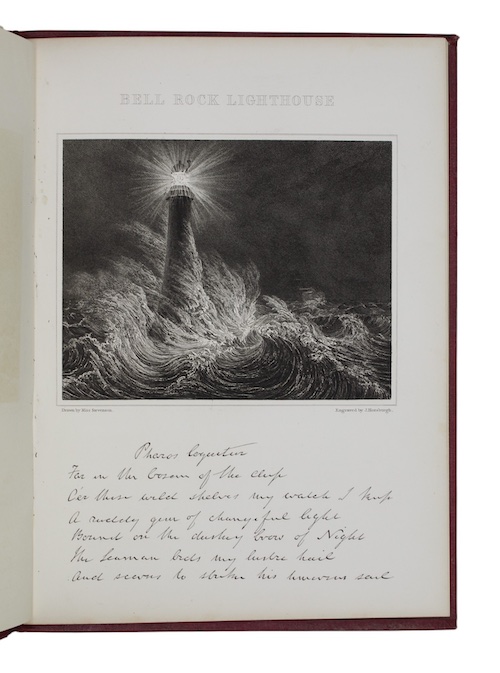 BELL ROCK LIGHTHOUSE
Drawn by Miss Stevenson. Engraved by J. Horsburgh.
Pharos loquitur
Far in the bosom of the deep
O'er these wild shelves my watch I keep
A ruddy gem of changeful light
Bound on the dusky brow of Night
The Seaman bids my lustre hail
And scorns to strike his timorous sail